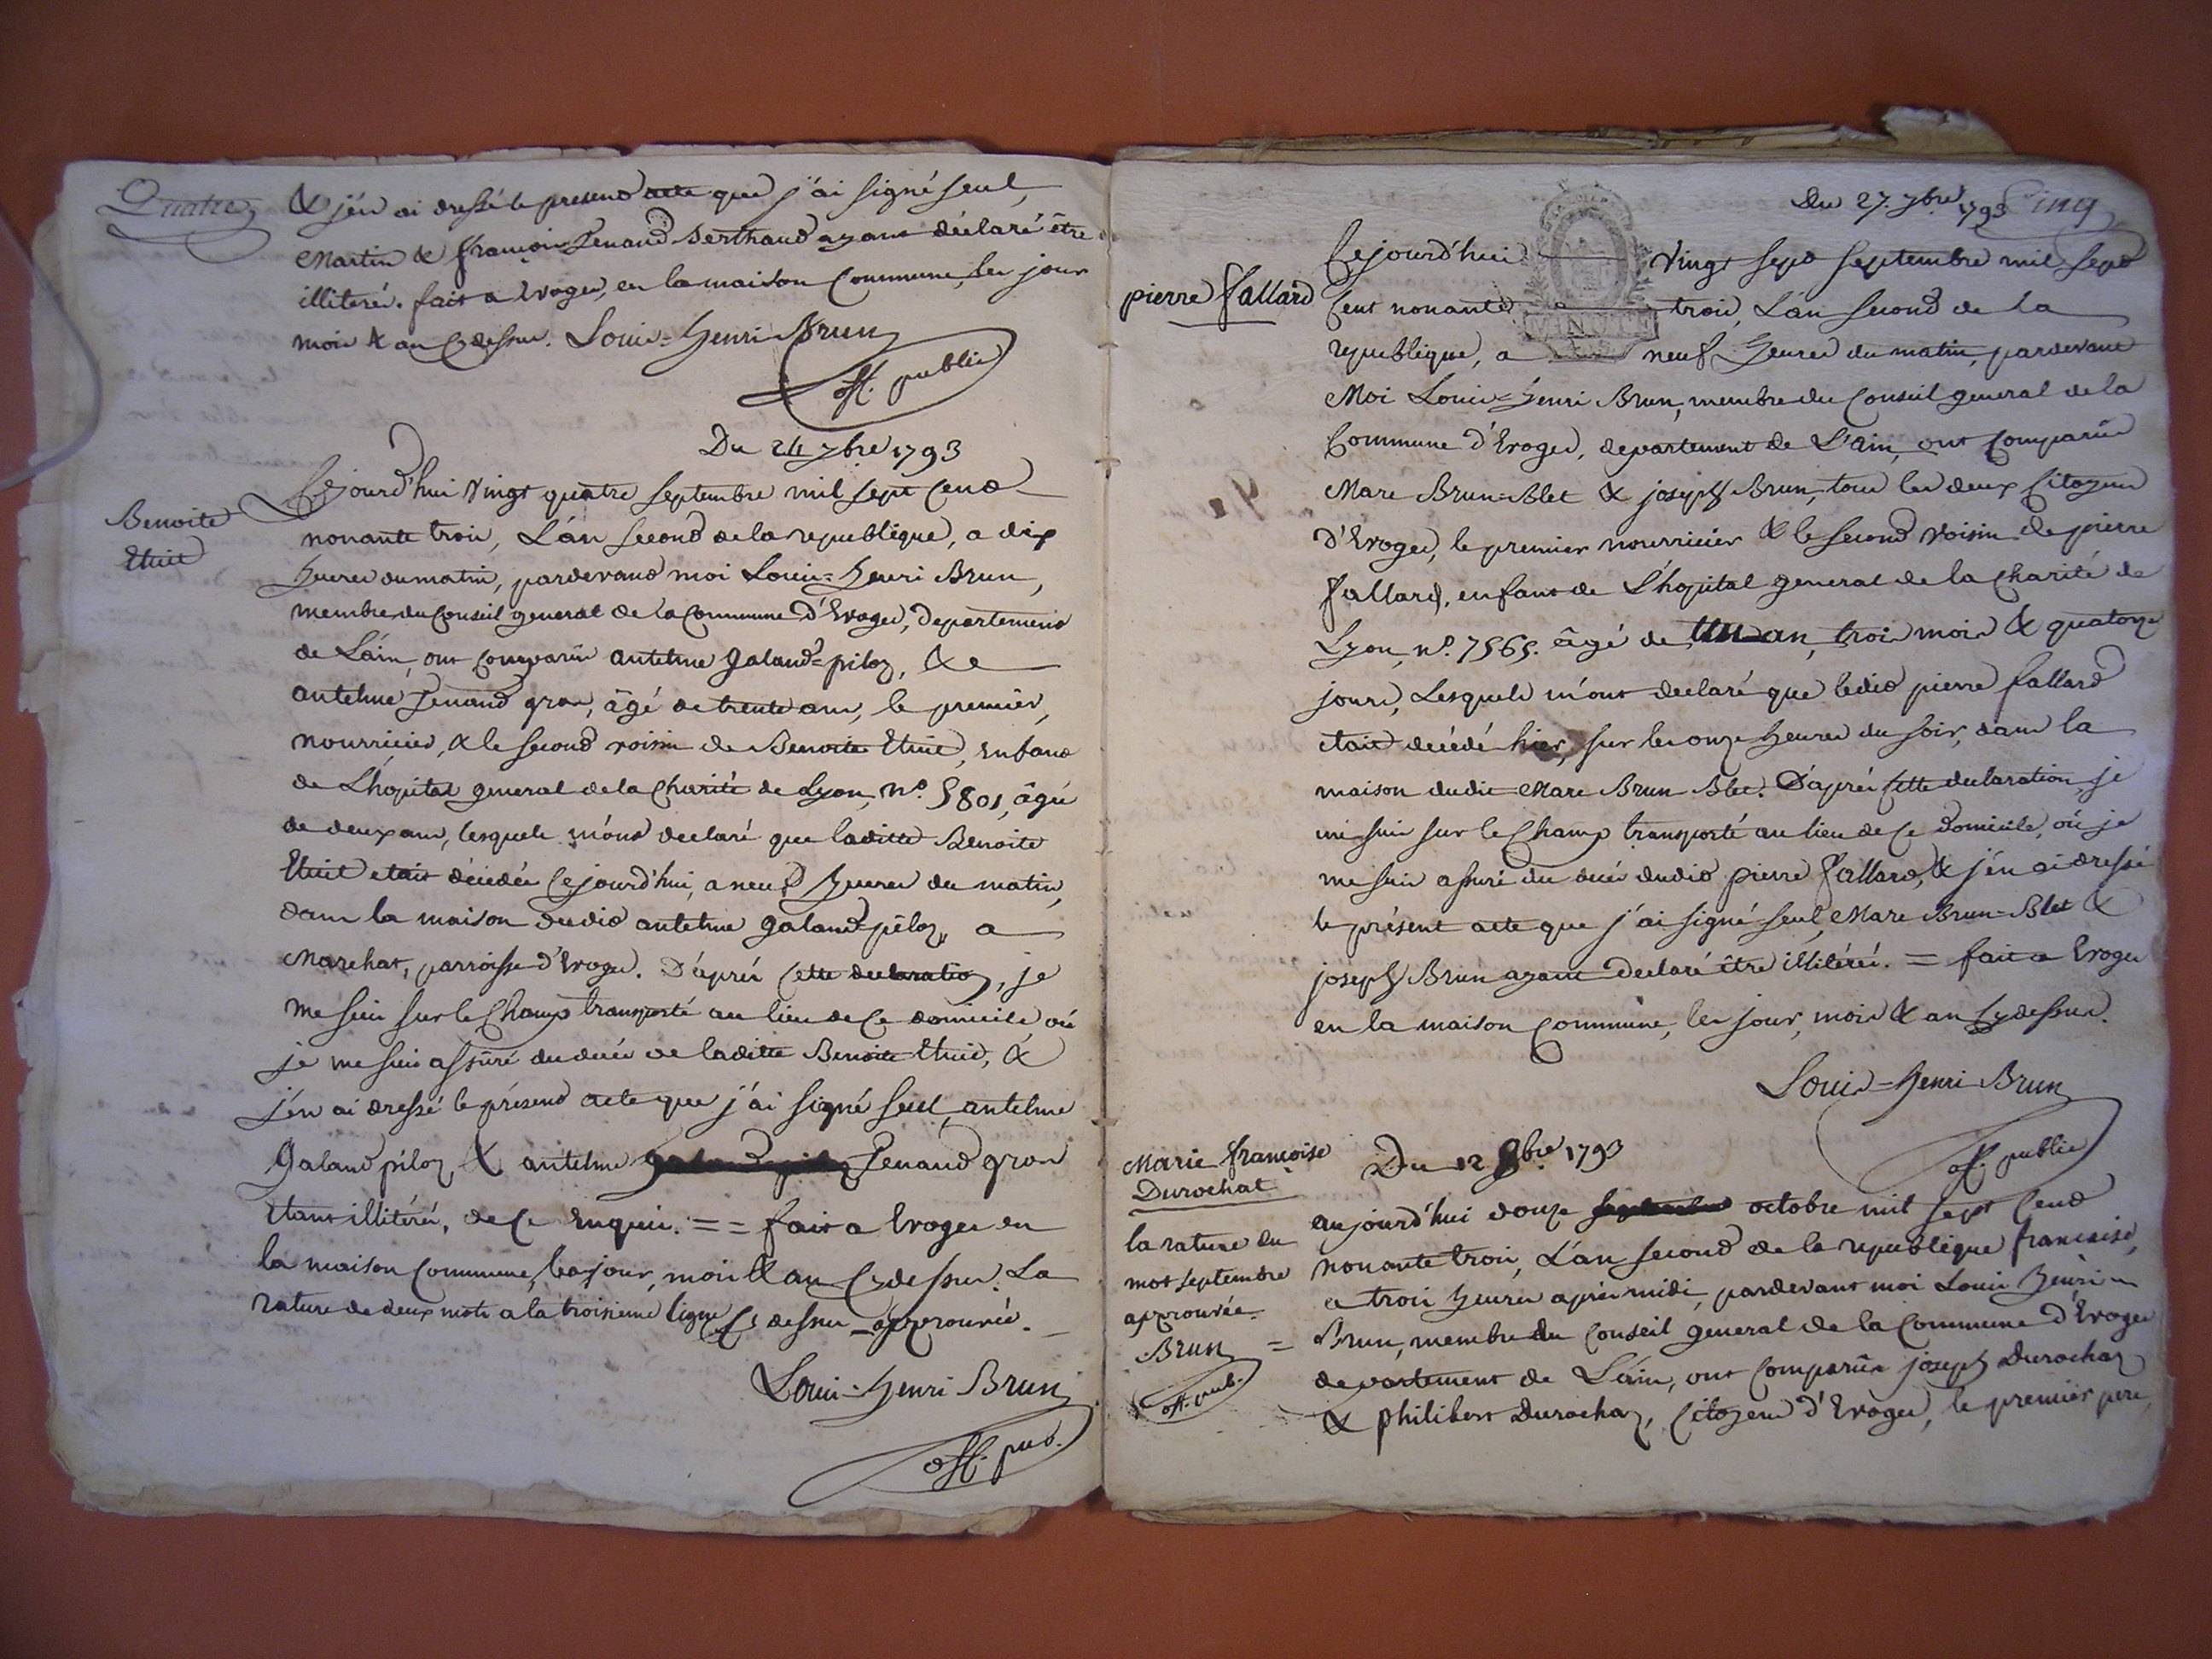 Quatre
& j'en ai dressé le present acte que j'ai signé seul,
Martin & françois Jenand Berthand ayant déclaré être
illiterés. fait a Evoges, en la maison Commune, les jour
mois & an Cydessus. Louis=Henri Brun
off. public
Du 24 7bre 1793
Benoite
Cejourd'hui Vingt quatre septembre mil sept Cent
nonante trois, L'an second de la republique, a dix
heures du matin, pardevant moi Louis=Henri Brun,
membre du Conseil general de la Commune d'Evoges, departement
de L'ain, ont comparûs antelme Galand=piloz, &
antelme Jenand gros, âgé de trente ans, le premier,
nourricier, & le second voisin de Benoite, enfant
de L'hopital general de la Charité de Lyon, n.º 5801, âgée
de deux ans, lesquels m'ont declaré que laditte Benoite
etait décédée Cejourd'hui, a neuf heures du matin,
dans la maison dudit antelme Galand=piloz, a
Marchat, parroisse d'Evoges. D'après Cette declaration, je
me suis sur le Champ transporté au lieu de Ce domicile où
je me suis assûré du decès de laditte Benoite, &
j'en ai dressé le présent acte que j'ai signé seul, antelme
Galand piloz & antelme Galand piloz Jenand gros
étant illitérés, de Ce Enquis. == fait a Evoges en
la maison Commune, les jour, mois & an Cydessus. La
rature de deux mots a la troisieme ligne Cy dessus approuvée.
Louis=Henri Brun
off. pub.
Du 27. 7bre 1793
Cinq
pierre fallard
Cejourd'hui Vingt sept septembre mil sept
Cent nonante trois, L'an second de la
MINUTE
republique, a neuf heures du matin, pardevant
Moi Louis=Henri Brun, membre du Conseil general de la
Commune d'Evoges, departement de L'ain, ont Comparûs
Marc Brun=Blet & joseph Brun, tous les deux Citoyens
d'Evoges, le premier nourricier & le second voisin de pierre
fallard, enfant de L'hopital general de la Charité de
Lyon, n.º 7565. âgé de un an, trois mois & quatorze
jours, Lesquels m'ont declaré que ledit pierre fallard
etait decédé hier, sur les onze heures du soir, dans la
maison dudit Marc Brun Blet. D'après Cette declaration, je
me suis sur le Champ transporté au lieu de Ce domicile, où je
me suis assuré du decès dudit pierre fallard, & j'en ai dressé
le présent acte que j'ai signé seul, Marc Brun=Blet &
joseph Brun ayant declaré être illitérés. = fait a Evoges
en la maison Commune, les jour, mois & an Cydessus.
Louis=Henri Brun
off. public
Marie françoise
Durochat
Du 12 8bre 1793
la rature du
mot septembre
approuvée.
Brun =
off. pub.
aujourd'hui douze septembre octobre mil sept Cent
nonante trois, L'an second de la republique francaise,
a trois heures après midi, pardevant moi Louis Henri
Brun, membre du Conseil general de la Commune d'Evoges
departement de L'ain, ont Comparûs joseph Durochaz
& philibert Durochaz, Citoyens d'Evoges, le premier pere,